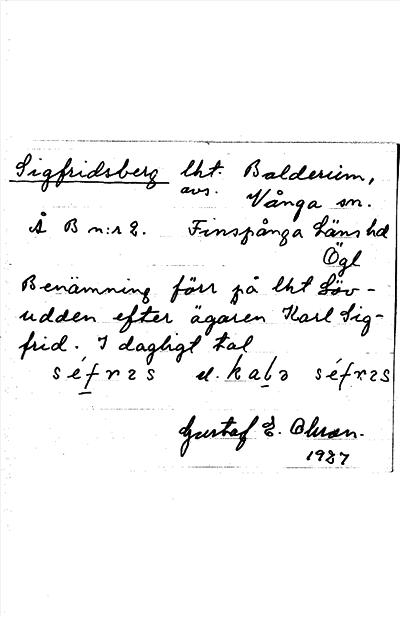 Sigfridsberg lht. Balderum,
avs. Vånga sn.
Å B n:r 2. Finspånga Läns hd
Ögl
Benämning förr på lht Löv-
udden efter ägaren Karl Sig-
frid. I dagligt tal
séfrɛs el. kalə séfrɛs
Gustaf E.
1927